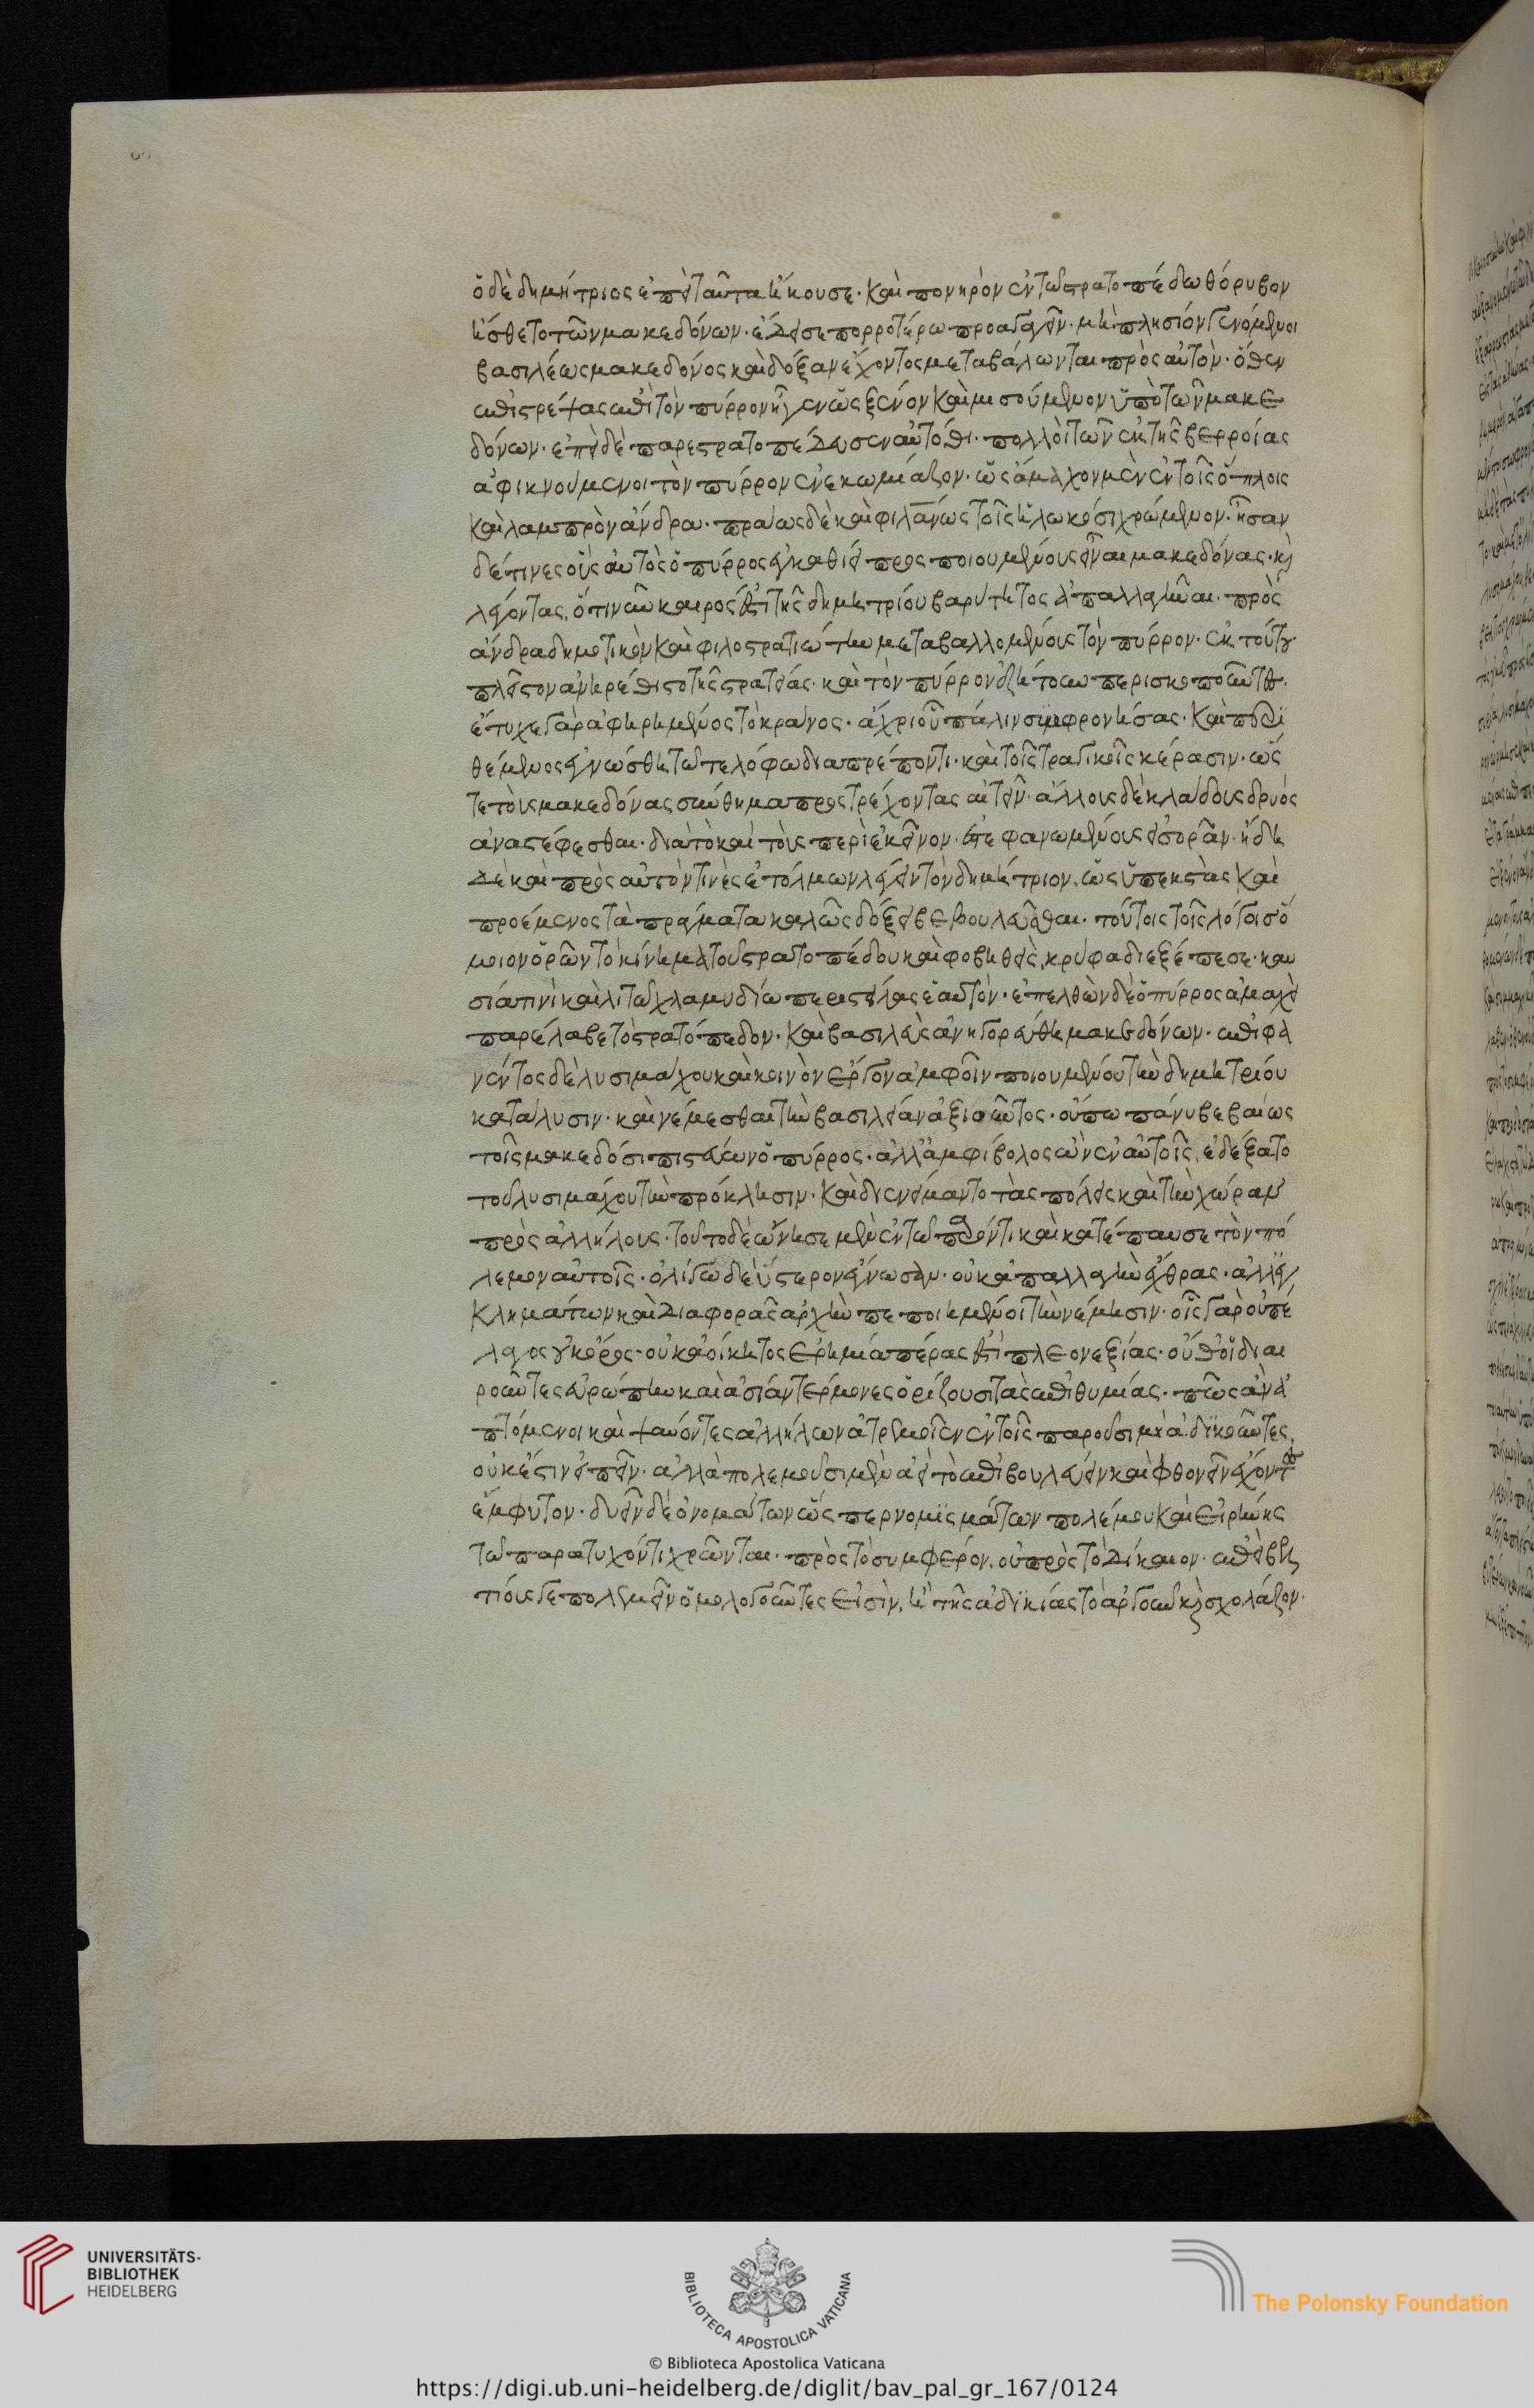 ὁ δὲ δημήτριος ἐπεὶ ταῦτα ἤκουσε· καὶ πονηρὸν ἐν τῶ στρατοπέδω θόρυβον
ἤσθετο τῶν μακεδόνων· ἔδεισε πορροτέρω προαγαγεῖν· μὴ πλησίον γενόμενοι
βασιλέως μακεδόνος καὶ δόξαν ἔχοντος μεταβάλωνται πρὸς αὐτόν· ὅθεν
ἐπιστρέψας ἐπὶ τὸν πύρρον ἦγεν ὡς ξένον καὶ μισούμενον ὑπὸ τῶν μακε
δόνων· ἐπεὶ δὲ παρεστρατοπέδευσεν αὐτόθι· πολλοὶ τῶν ἐκ τῆς βερροίας
ἀφικνούμενοι τὸν πύρρον ἐνεκωμίαζον· ὡς ἄμαχον μὲν ἐν τοῖς ὅπλοις
καὶ λαμπρὸν ἄνδρα· πράως δὲ καὶ φιλανως τοῖς ἡλωκόσι χρώμενον· ἦσαν
δέ τινες οὓς αὐτὸς ὁ πύρρος ἐγκαθίει προςποιουμένους εἶναι μακεδόνας· κὶ
λέγοντας, ὅτι νῦν καιρός ἐστι τῆς δημητρίου βαρύτητος ἀπαλλαγῆναι· πρὸς
ἄνδρα δημοτικὸν καὶ φιλοστρατιώτην μεταβαλλομένους τὸν πύρρον· ἐκ τούτου
πλεῖστον ἀνηρέθιστο τῆς στρατείας· καὶ τὸν πύρρον ἐζήτουν περισκοποῦντες·
ἔτυχε γὰρ ἀφηρημένος τὸ κράνος· ἄχρι οὗ πάλιν συμφρονήσας· καὶ περι
θέμενος ἐγνώσθη τῶ τε λόφω διαπρέποντι· καὶ τοῖς τραγικοῖς κέρασιν· ὥς
τε τοὺς μακεδόνας σύνθημα προςτρέχοντας αἰτεῖν· ἄλλους δὲ κλάδους δρυὸς
ἀναστέφεσθαι· διὰ τὸ καὶ τοὺς περὶ ἐκεῖνον ἐστεφανωμένους εἰσορᾶν· ἤδη
δὲ καὶ πρὸς αὐτόν τινὲς ἐτόλμων λέγειν τὸν δημήτριον, ὡς ὑπεκστὰς καὶ
προέμενος τὰ πράγματα καλῶς δόξει βεβουλεῦσθαι· τούτοις τοῖς λόγοις ὅ
μοιον ὁρῶν τὸ κίνημα τοῦ στρατοπέδου καὶ φοβηθεὶς, κρύφα διεξέπεσε· καυ
σία τινὶ καὶ λιτῶ χλαμυδίω περιστείλας ἑαυτόν· ἐπελθὼν δὲ ὁ πύρρος ἀμαχεὶ
παρέλαβε τὸ στρατόπεδον· καὶ βασιλεὺς ἀνηγορεύθη μακεδόνων· ἐπιφα
νέντος δὲ λυσιμάχου καὶ κοινὸν ἔργον ἀμφοῖν ποιουμένου τὴν δημητρίου
κατάλυσιν· καὶ νέμεσθαι τὴν βασιλείαν ἀξιοῦντος· οὔπω πάνυ βεβαίως
τοῖς μακεδόσι πιστεύων ὁ πύρρος· ἀλλ' ἀμφίβολος ὢν ἐν αὐτοῖς, ἐδέξατο
τοῦ λυσιμάχου τὴν πρόκλησιν· καὶ διενείμαντο τὰς πόλεις καὶ τὴν χώραν
πρὸς ἀλλήλους· τοῦτο δὲ ὤνησε μὲν ἐν τῶ παρόντι καὶ κατέπαυσε τὸν πό
λεμον αὐτοῖς· ὀλίγω δὲ ὕστερον ἔγνωσαν· οὐκ ἀπαλλαγὴν ἔχθρας· ἀλλ' ἐγ
κλημάτων καὶ διαφορᾶς ἀρχὴν πεποιημένοι τὴν νέμησιν· οἷς γὰρ οὐ πέ
λαγος οὐκ ὄρος· οὐκ ἀοίκητος ἐρημία πέρας ἐστὶ πλεονεξίας· οὐθ' οἱ διαι
ροῦντες εὐρώπην καὶ ἀσίαν τέρμονες ὁρίζουσι τὰς ἐπιθυμίας· πῶς ἂν ἁ
πτόμενοι καὶ ψαύοντες ἀλλήλων ἀτρεμοῖεν ἐν τοῖς παροῦσι μὴ ἀδικοῦντες,
οὐκ ἔστιν εἰπεῖν· ἀλλὰ πολεμοῦσι μὲν ἀεὶ τὸ ἐπιβουλεύειν καὶ φθονεῖν ἔχοντες
ἔμφυτον· δυεῖν δὲ ὀνομάτων ὥςπερ νομισμάτων πολέμου καὶ εἰρήνης
τῶ παρατυχόντι χρῶνται· πρὸς τὸ συμφέρον, οὐ πρὸς τὸ δίκαιον· ἐπεὶ βελ
τίους γε πολεμεῖν ὁμολογοῦντες εἰσὶν, ἢ τῆς ἀδικίας τὸ ἀργοῦν κὶ σχολάζον·
UNIVERSITÄTS-
BIBLIOTHEK
HEIDELBERG
BIBLIOTECA APOSTOLICA VATICANA
The Polonsky Foundation
© Biblioteca Apostolica Vaticana
https://digi.ub.uni-heidelberg.de/diglit/bav_pal_gr_167/0124